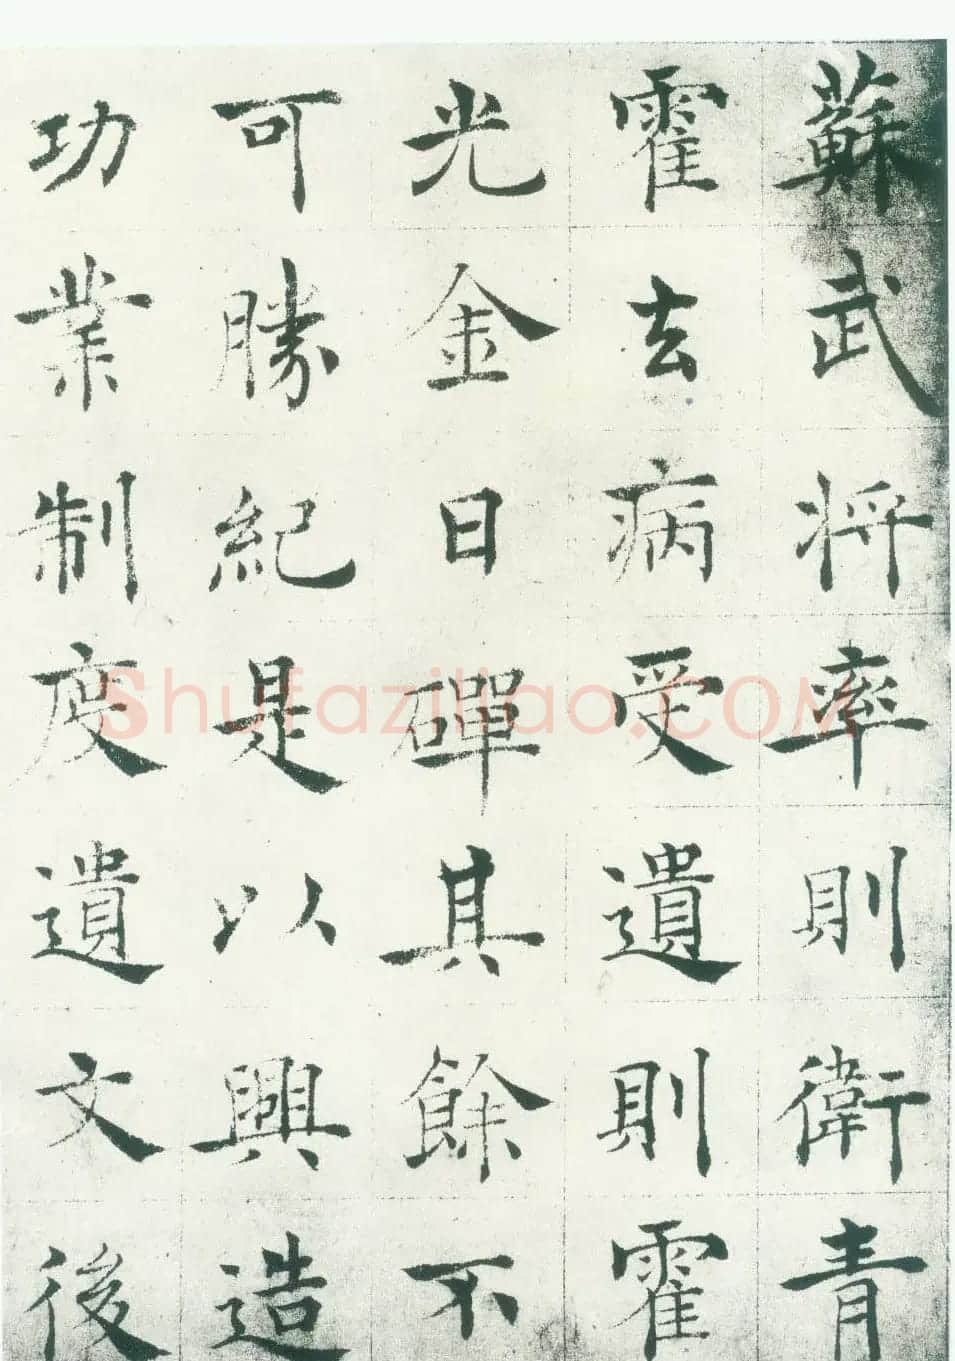 蘇武將率則衛青
霍去病受遺則霍
光金日磾其餘不
可勝紀是以興造
功業制度遺文後
Shufaziliao.COM